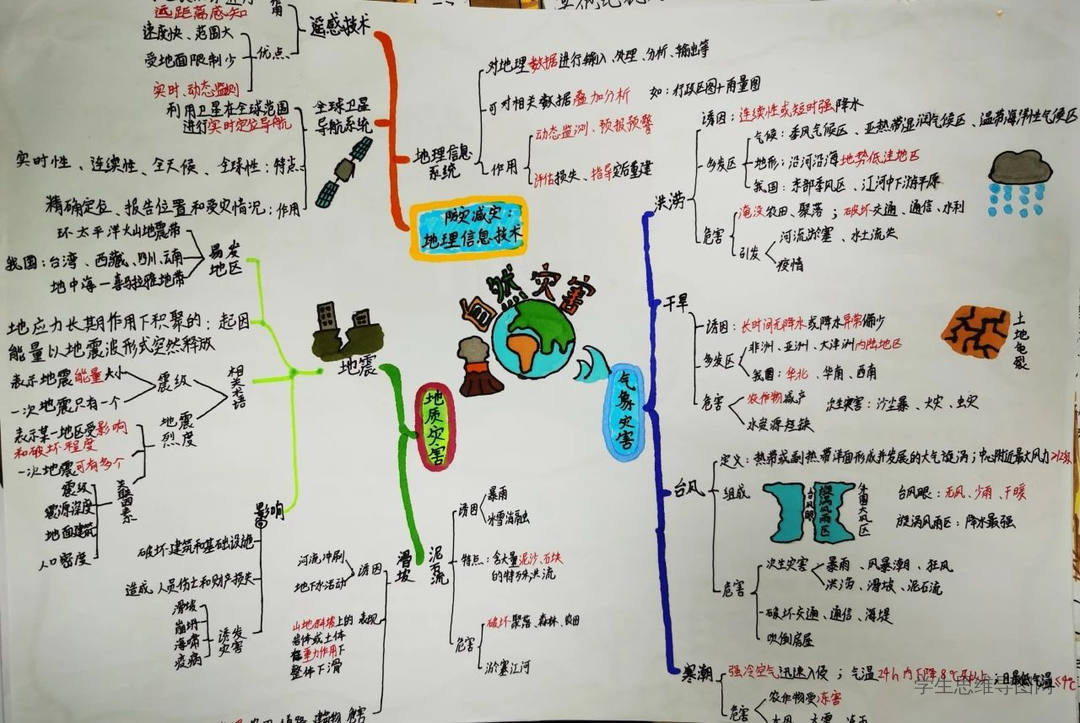 远距离感知
速度快、范围大
受地面限制少
实时、动态监测
优点
遥感技术
利用卫星在全球范围
进行实时定位导航
全球卫星
导航系统
实时性、连续性、全天候、全球性：特点
精确定位、报告位置和受灾情况：作用
地理信息
系统
对地理数据进行输入、处理、分析、输出等
可对相关数据叠加分析 如：行政区图+雨量图
作用
动态监测、预报预警
评估损失、指导灾后重建
防灾减灾：
地理信息技术
自然灾害
地质灾害
气象灾害
地震
环太平洋火山地震带
我国：台湾、西藏、四川、云南
地中海—喜马拉雅地带
易发
地区
地应力长期作用下积聚的：起因
能量以地震波形式突然释放
相关术语
表示地震能量大小
一次地震只有一个
震级
地震
烈度
表示某一地区受影响
和破坏程度
一次地震可有多个
关联因素
震级
震源深度
地面建筑
人口密度
影响
破坏建筑和基础设施
造成人员伤亡和财产损失
滑坡
崩坍
海啸
疫病
诱发
灾害
滑坡
河流冲刷
地下水活动
诱因
山地斜坡上的
岩体或土体
在重力作用下
整体下滑
表现
危害
泥石流
诱因
暴雨
冰雪消融
特点：含大量泥沙、石块
的特殊洪流
危害
破坏聚落、森林、农田
淤塞江河
洪涝
诱因：连续性或短时强降水
多发区
气候：季风气候区、亚热带湿润气候区、温带海洋性气候区
地形：沿河沿海地势低洼地区
我国：东部季风区、辽河中下游平原
危害
淹没农田、聚落；破坏交通、通信、水利
引发
河流淤塞、水土流失
疫情
干旱
诱因：长时间无降水或降水异常偏少
多发区
非洲、亚洲、大洋洲内陆地区
我国：华北、华南、西南
危害
农作物减产 次生灾害：沙尘暴、火灾、虫灾
水资源短缺
土地龟裂
台风
定义：热带或副热带洋面形成并发展的大气旋涡；中心附近最大风力≥12级
组成
台风眼
旋涡风雨区
外围大风区
台风眼：无风、少雨、干暖
旋涡风雨区：降水最强
危害
次生灾害
暴雨、风暴潮、狂风
洪涝、滑坡、泥石流
破坏交通、通信、海堤
吹倒房屋
寒潮
强冷空气迅速入侵；气温24h内下降8℃及以上；日最低气温≤4℃
危害
农作物受冻害
学生思维导图网